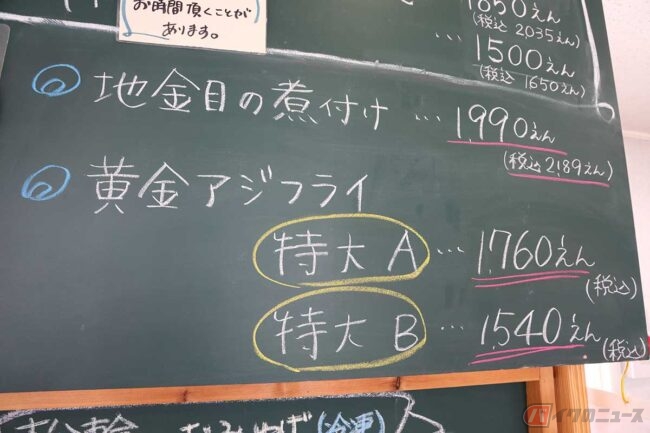 お時間頂くことが
あります。
1850えん
(税込 2035えん)
… 1500えん
(税込 1650えん)
地金目の煮付け … 1,990えん
(税込 2,189えん)
黄金アジフライ
特大 A … 1,760えん
(税込)
特大 B … 1,540えん
(税込)
(冷凍)
バイクのニュース